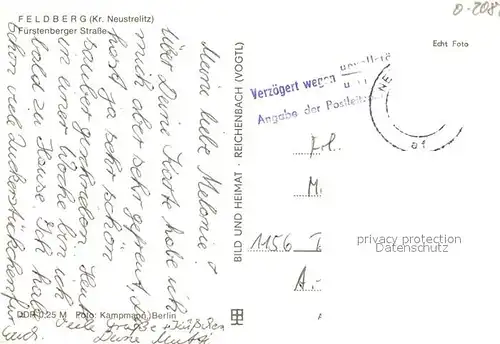 FELDBERG (Kr. Neustrelitz)
Fürstenberger Straße
Meine liebe Melonie!
Über Deine Karte habe ich
mich aber sehr gefreut, Du
hast ja sehr schön
sauber geschrieben. Heut
in einer Woche bin ich
bald zu Hause. Ich habe
schon viel Zuckerstückchen für
Euch. Viele Grüße u. Küßchen
Deine Mutti
DDR 0,25 M Foto: Kampmann, Berlin
BILD UND HEIMAT · REICHENBACH (VOGTL)
Echt Foto
Verzögert wegen
Angabe der
Frl.
M.
1156
A.
privacy protection
Datenschutz